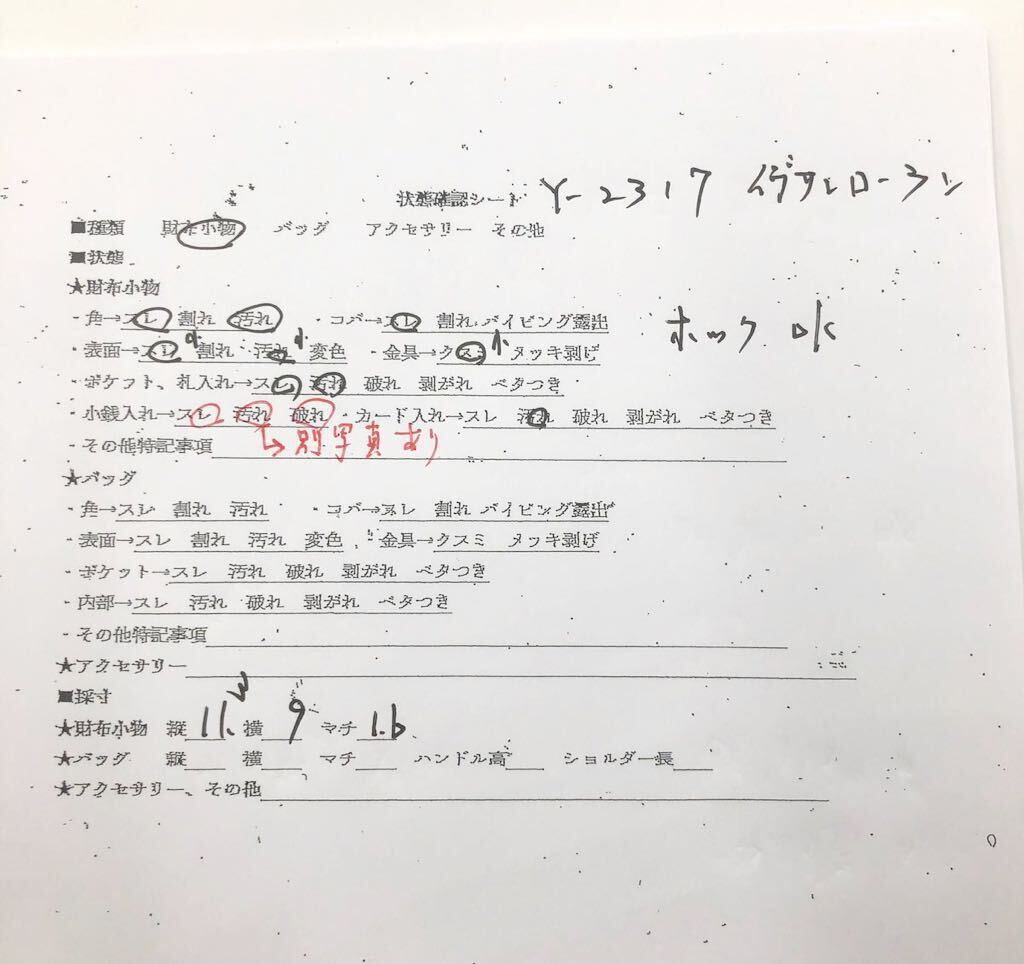 状態確認シート Y-2317 イヴサンローラン
■種類 財布小物 バッグ アクセサリー その他
■状態
★財布小物
・角→スレ 割れ 汚れ ・コバ→スレ 割れ パイピング露出 ホック OK
・表面→スレ小 割れ 汚れ小 変色 ・金具→クスミ小 メッキ剥げ
・ポケット、札入れ→スレ 汚れ 破れ 剥がれ ベタつき
・小銭入れ→スレ 汚れ 破れ ・カード入れ→スレ 汚れ 破れ 剥がれ ベタつき
・その他特記事項 ↳別写真あり
★バッグ
・角→スレ 割れ 汚れ ・コバ→スレ 割れ パイピング露出
・表面→スレ 割れ 汚れ 変色 ・金具→クスミ メッキ剥げ
・ポケット→スレ 汚れ 破れ 剥がれ ベタつき
・内部→スレ 汚れ 破れ 剥がれ ベタつき
・その他特記事項
★アクセサリー
■採寸
★財布小物 縦 11. 横 9 マチ 1.6
★バッグ 縦 横 マチ ハンドル高 ショルダー長
★アクセサリー、その他